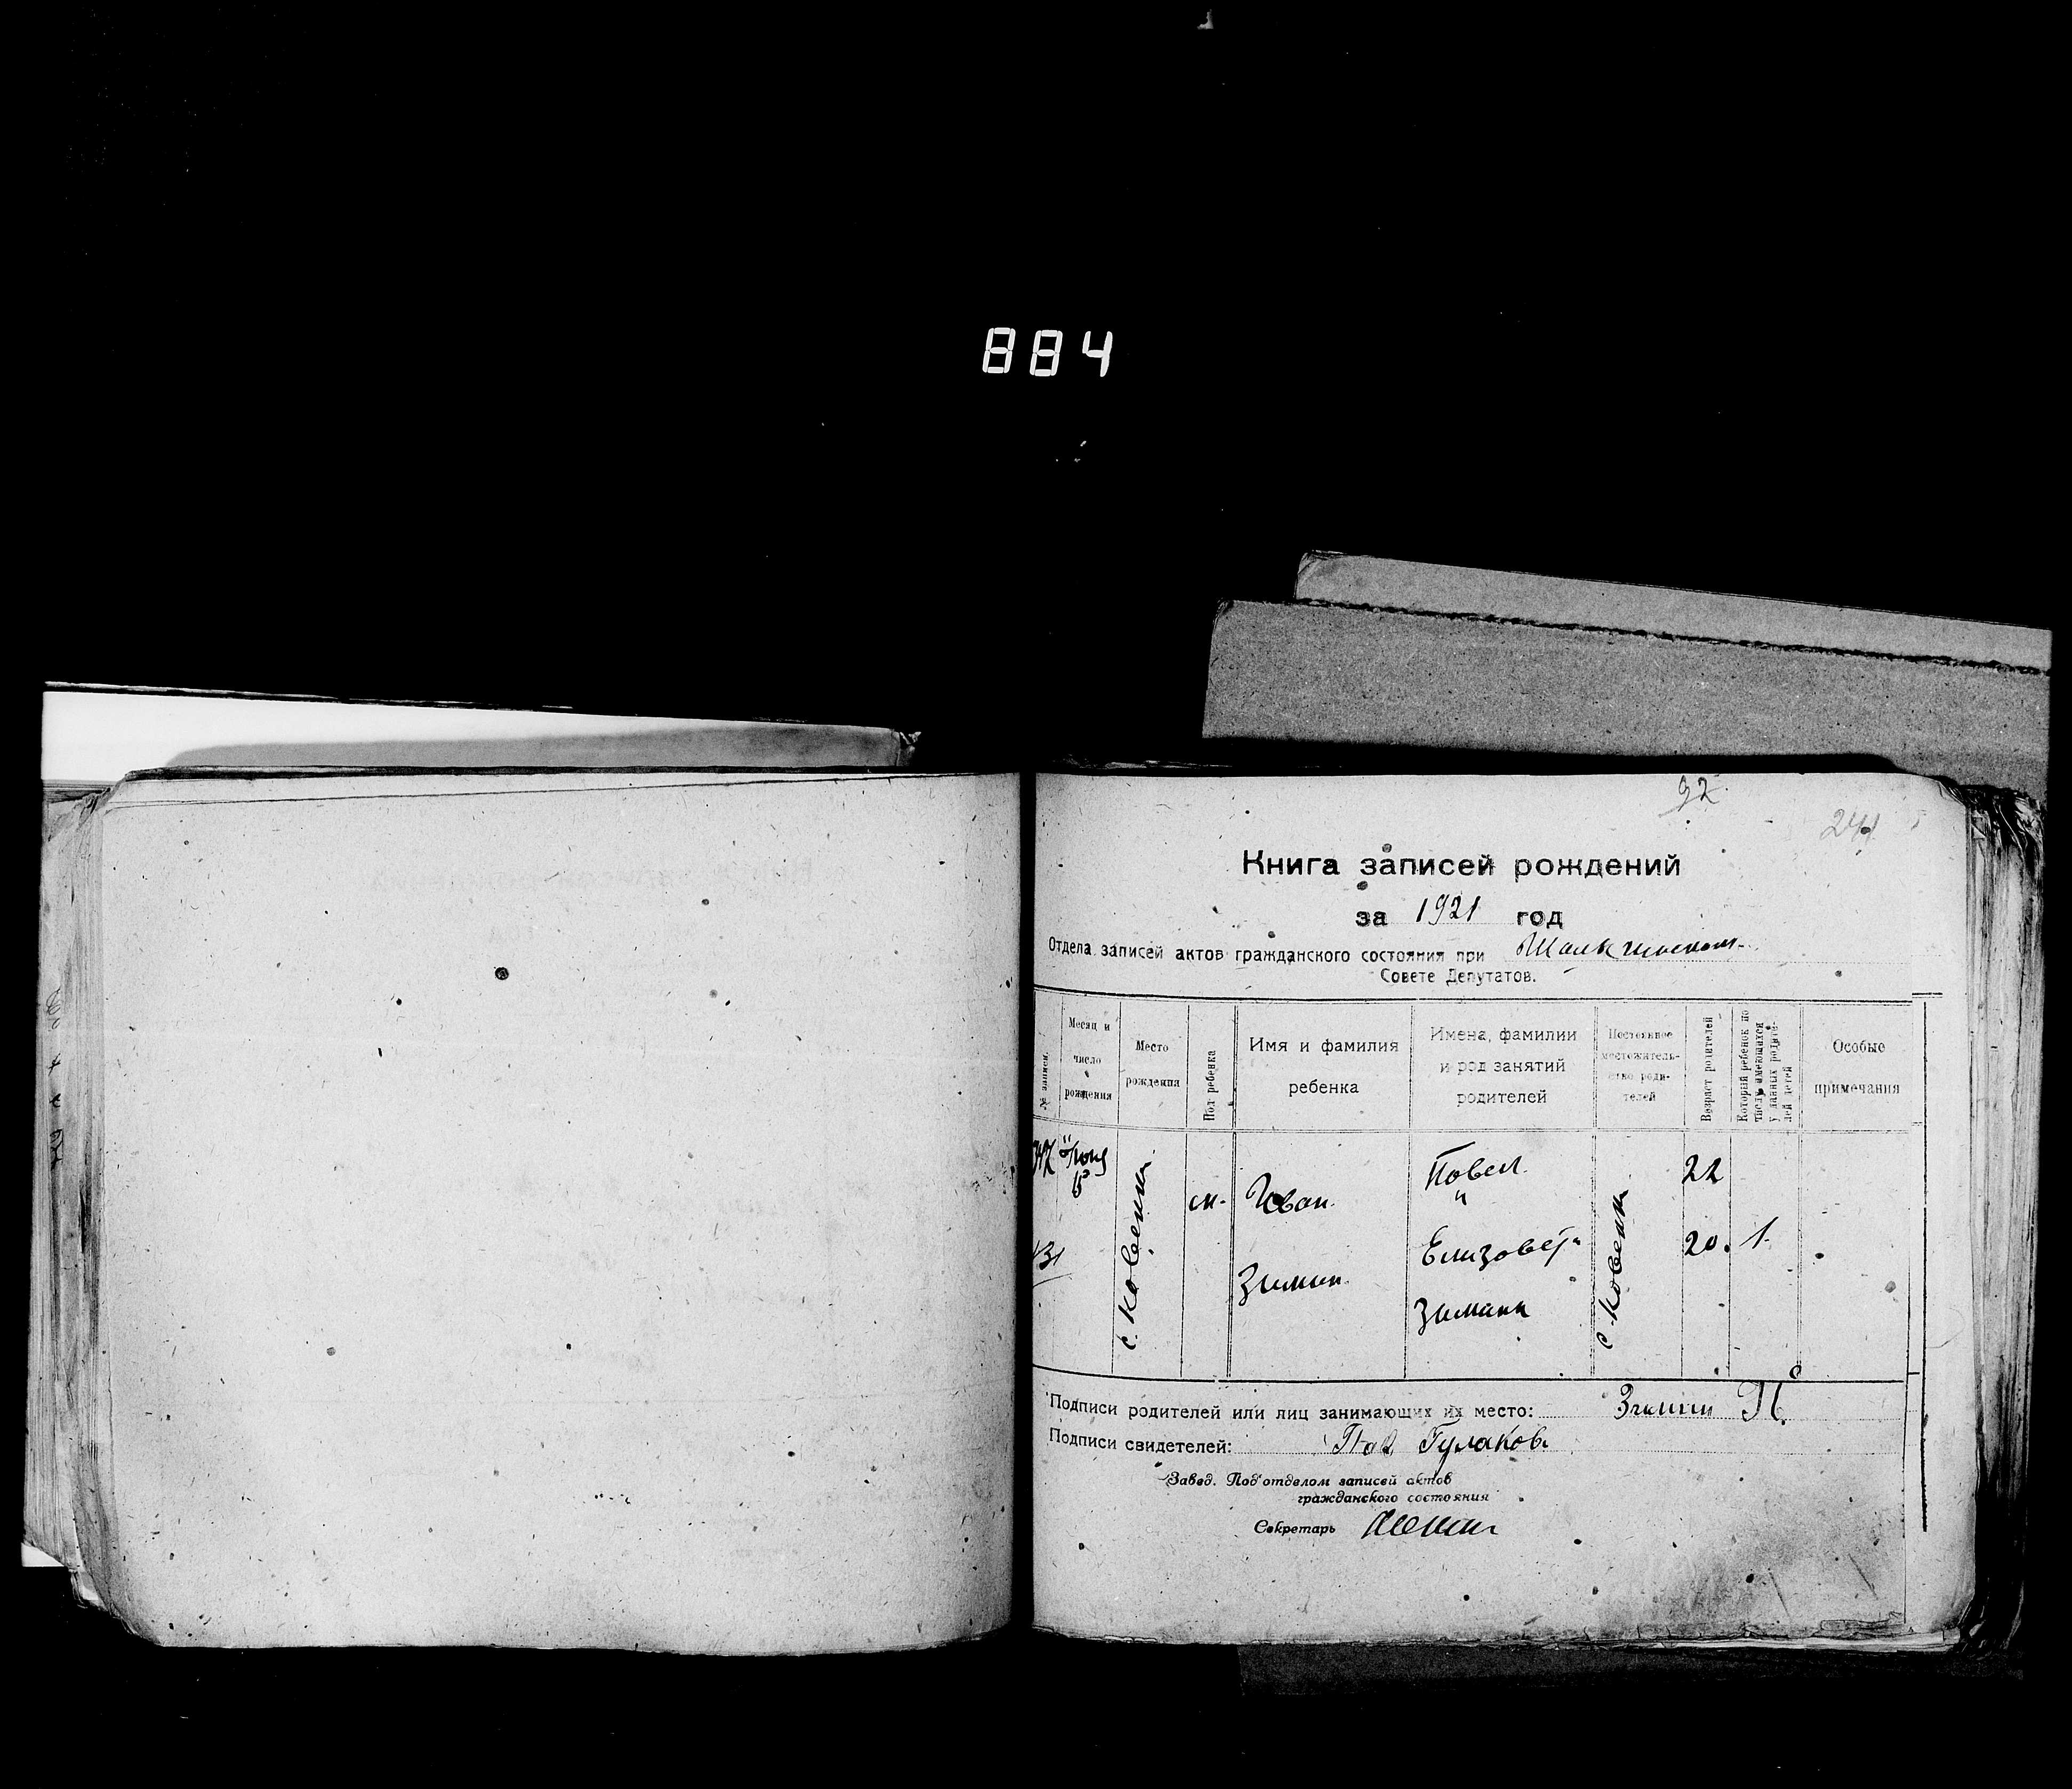 884
92
244
Книга записей рождений
за 1921 год
Отдела записей актов гражданского состояния при
Совете Депутатов.
№ записи.
Месяц и число рождения
Место рождения
Пол ребенка
Имя и фамилия ребенка
Имена, фамилии и род занятий родителей
Постоянное местожительство родителей
Возраст родителей
Который ребенок по числу имеющихся у данных родителей детей
Особые примечания
м.
Иван
Зимин
Повел
"
Елизовета
Зимины
22
20.
1.
Подписи родителей или лиц занимающих их место: Зимин П.
Подписи свидетелей: Гулаков
Завед. Подотделом записей актов
гражданского состояния
Секретарь